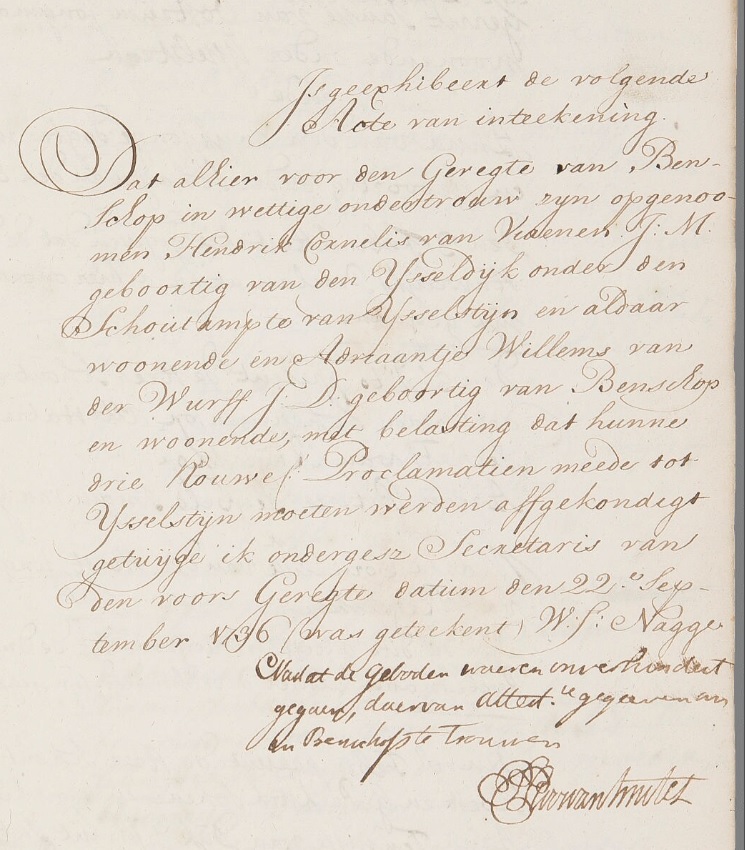 Is geexhibeert de volgende
Acte van inteekening.
Dat alhier voor den Geregte van Ben-
schop in wettige ondertrouw zyn opgenoo-
men Hendrik Cornelis van Vuenen J: M.
geboortig van den Ysseldyk onder den
Schoutampte van Ysselstyn en aldaar
woonende en Adriaantje Willems van
der Wurff J: D. geboortig van Benschop
en woonende, met belasting dat hunne
drie Houwel: Proclamatien meede tot
Ysselstyn moeten werden affgekondigt
getuyge ik ondergesz Secretaris van
den voors Geregte datum den 22.e Sep-
tember 1736 (was geteekent) W: S: Nagge
Nadat de geboden waeren onverhindert
gegaen, daervan Attest.ie gegeeven om
in Benschop te Trouwen